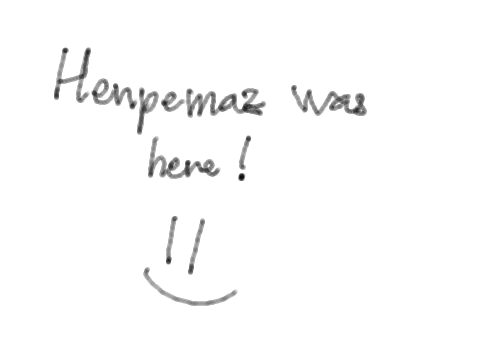 Henpemaz was
here!